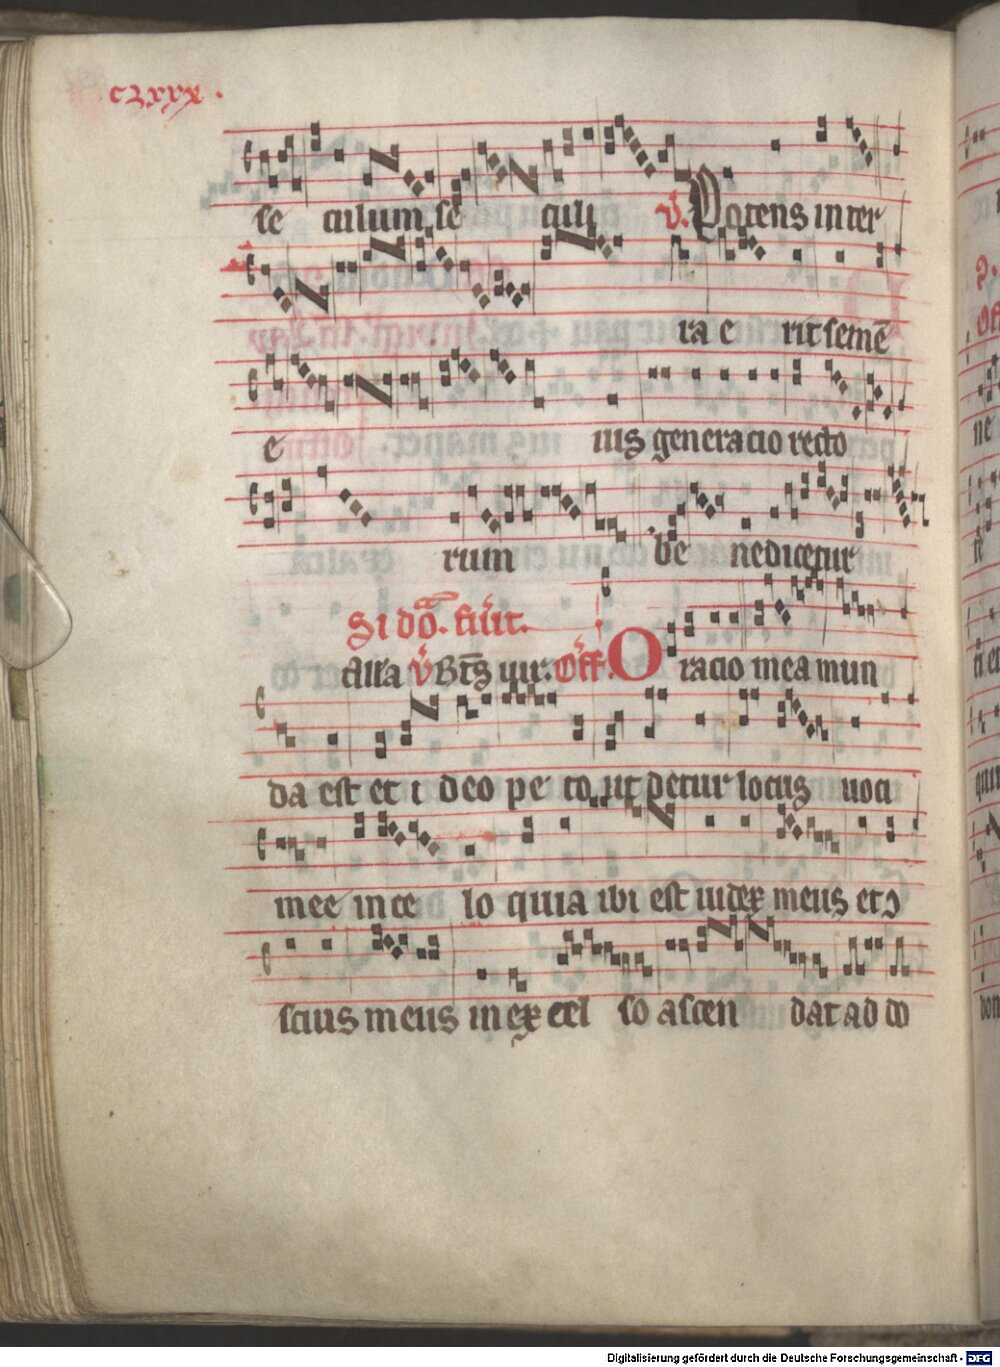 clxxx.
se culum se culi v̄. Potens in ter
ra e rit semē
e ius generacio recto
rum be nedicetur
Si dō. fūit.
Allā v̄ Btūs uir. Off. Oracio mea mun
da est et i deo pe to ut detur locus uoci
mee in ce lo quia ibi est iudex meus et ↄ
scius meus in ex cel so ascen dat ad do
Digitalisierung gefördert durch die Deutsche Forschungsgemeinschaft - DFG